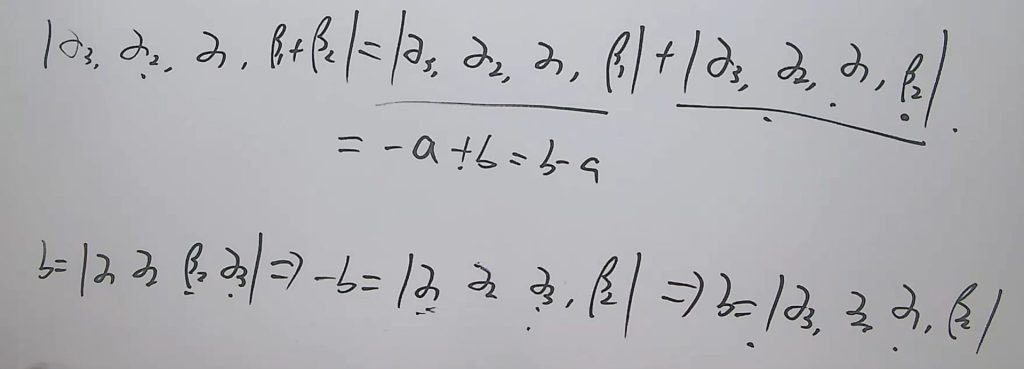 |α₃, α₂, α₁, β₁+β₂| = |α₃, α₂, α₁, β₁| + |α₃, α₂, α₁, β₂|.
= -a+b = b-a
b = |α₁ α₂ β₂ α₃| ⇒ -b = |α₁ α₂ α₃, β₂| ⇒ b = |α₃, α₂, α₁, β₂|